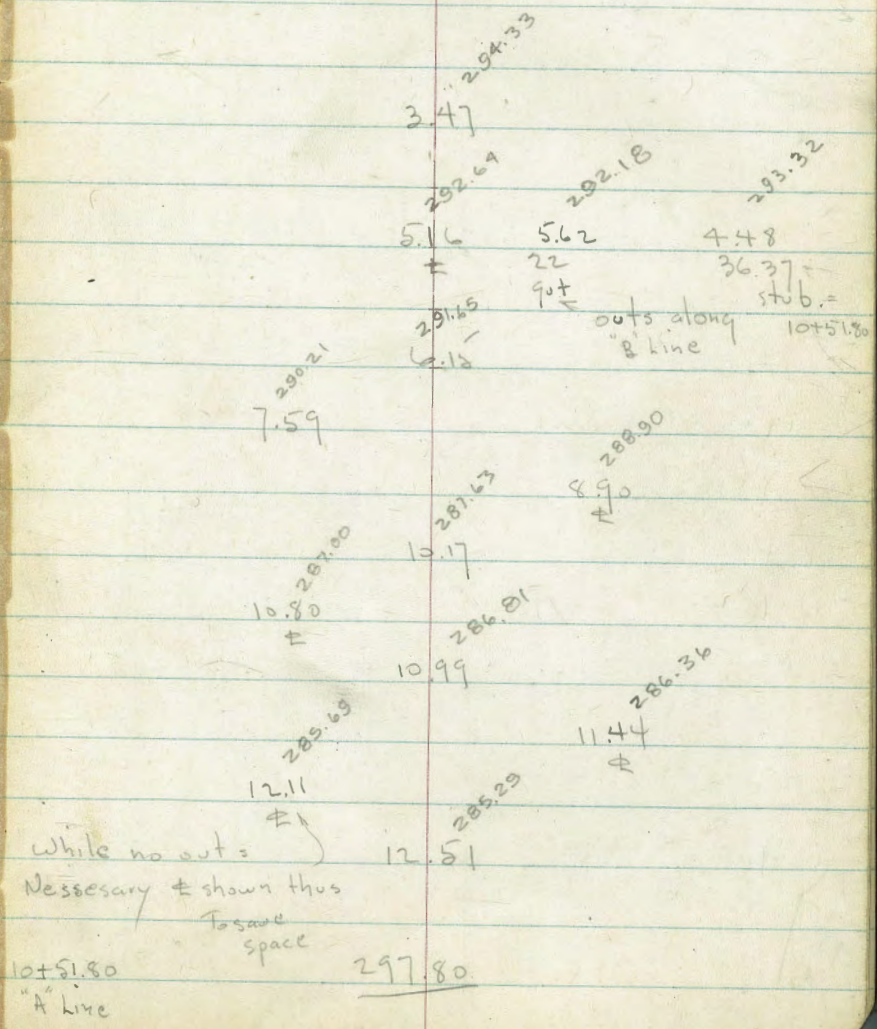 294.33
3.47
292.64 292.18 293.32
5.16 5.62 4.48
℄ 22 36.37
gut stub.=
outs along 10+51.80
"B" Line
291.65
6.15
290.21
7.59
288.90
8.90
℄
287.63
10.17
287.00
10.80
℄
286.81
10.99
286.36
11.44
℄
285.69
12.11
℄
285.29
12.51
While no outs
Nessesary ℄ shown thus
To save
space
10+51.80 297.80
"A" Line